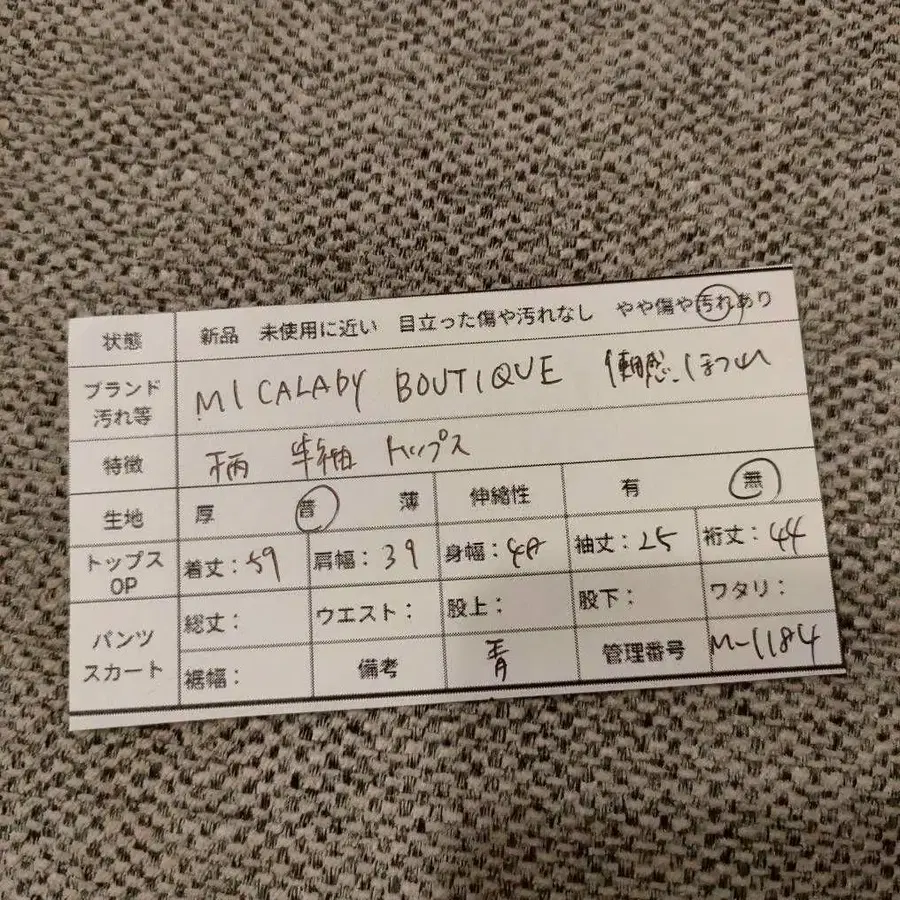 状態 新品 未使用に近い 目立った傷や汚れなし やや傷や汚れあり
ブランド 汚れ等 MICALADY BOUTIQUE 使用感、ほつれ
特徴 柄 半袖 トップス
生地 厚 普 薄 伸縮性 有 無
トップス OP 着丈：59 肩幅：39 身幅：48 袖丈：25 裄丈：44
パンツ スカート 総丈： ウエスト： 股上： 股下： ワタリ：
裾幅： 備考 青 管理番号 M-1184